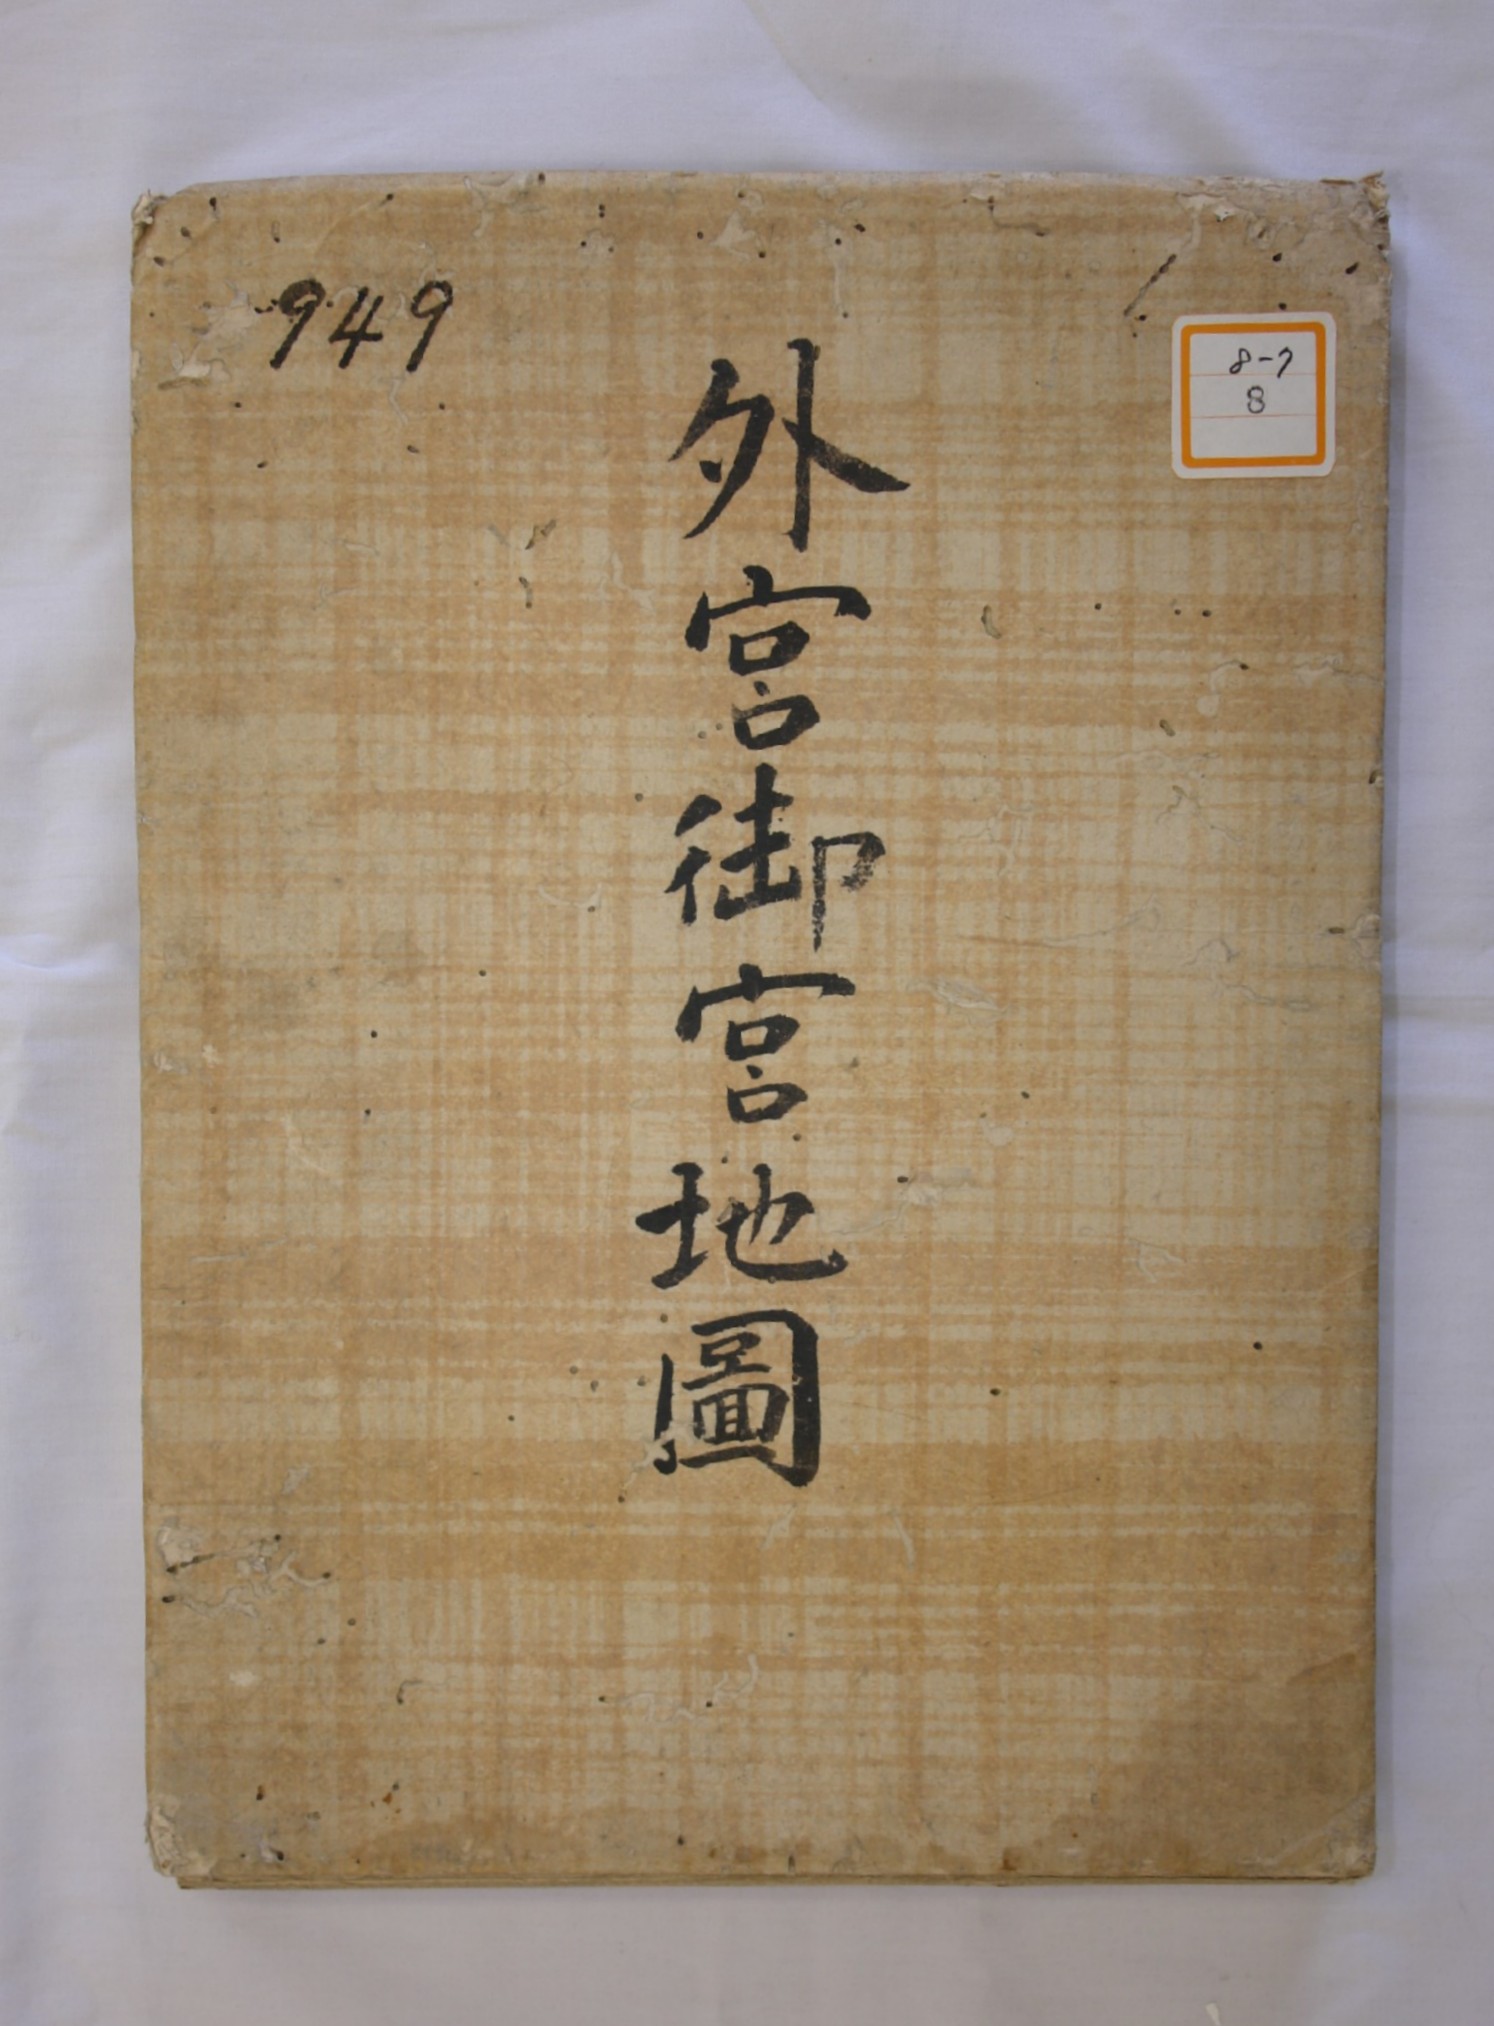 949
8-7
8
外宮御宮地圖